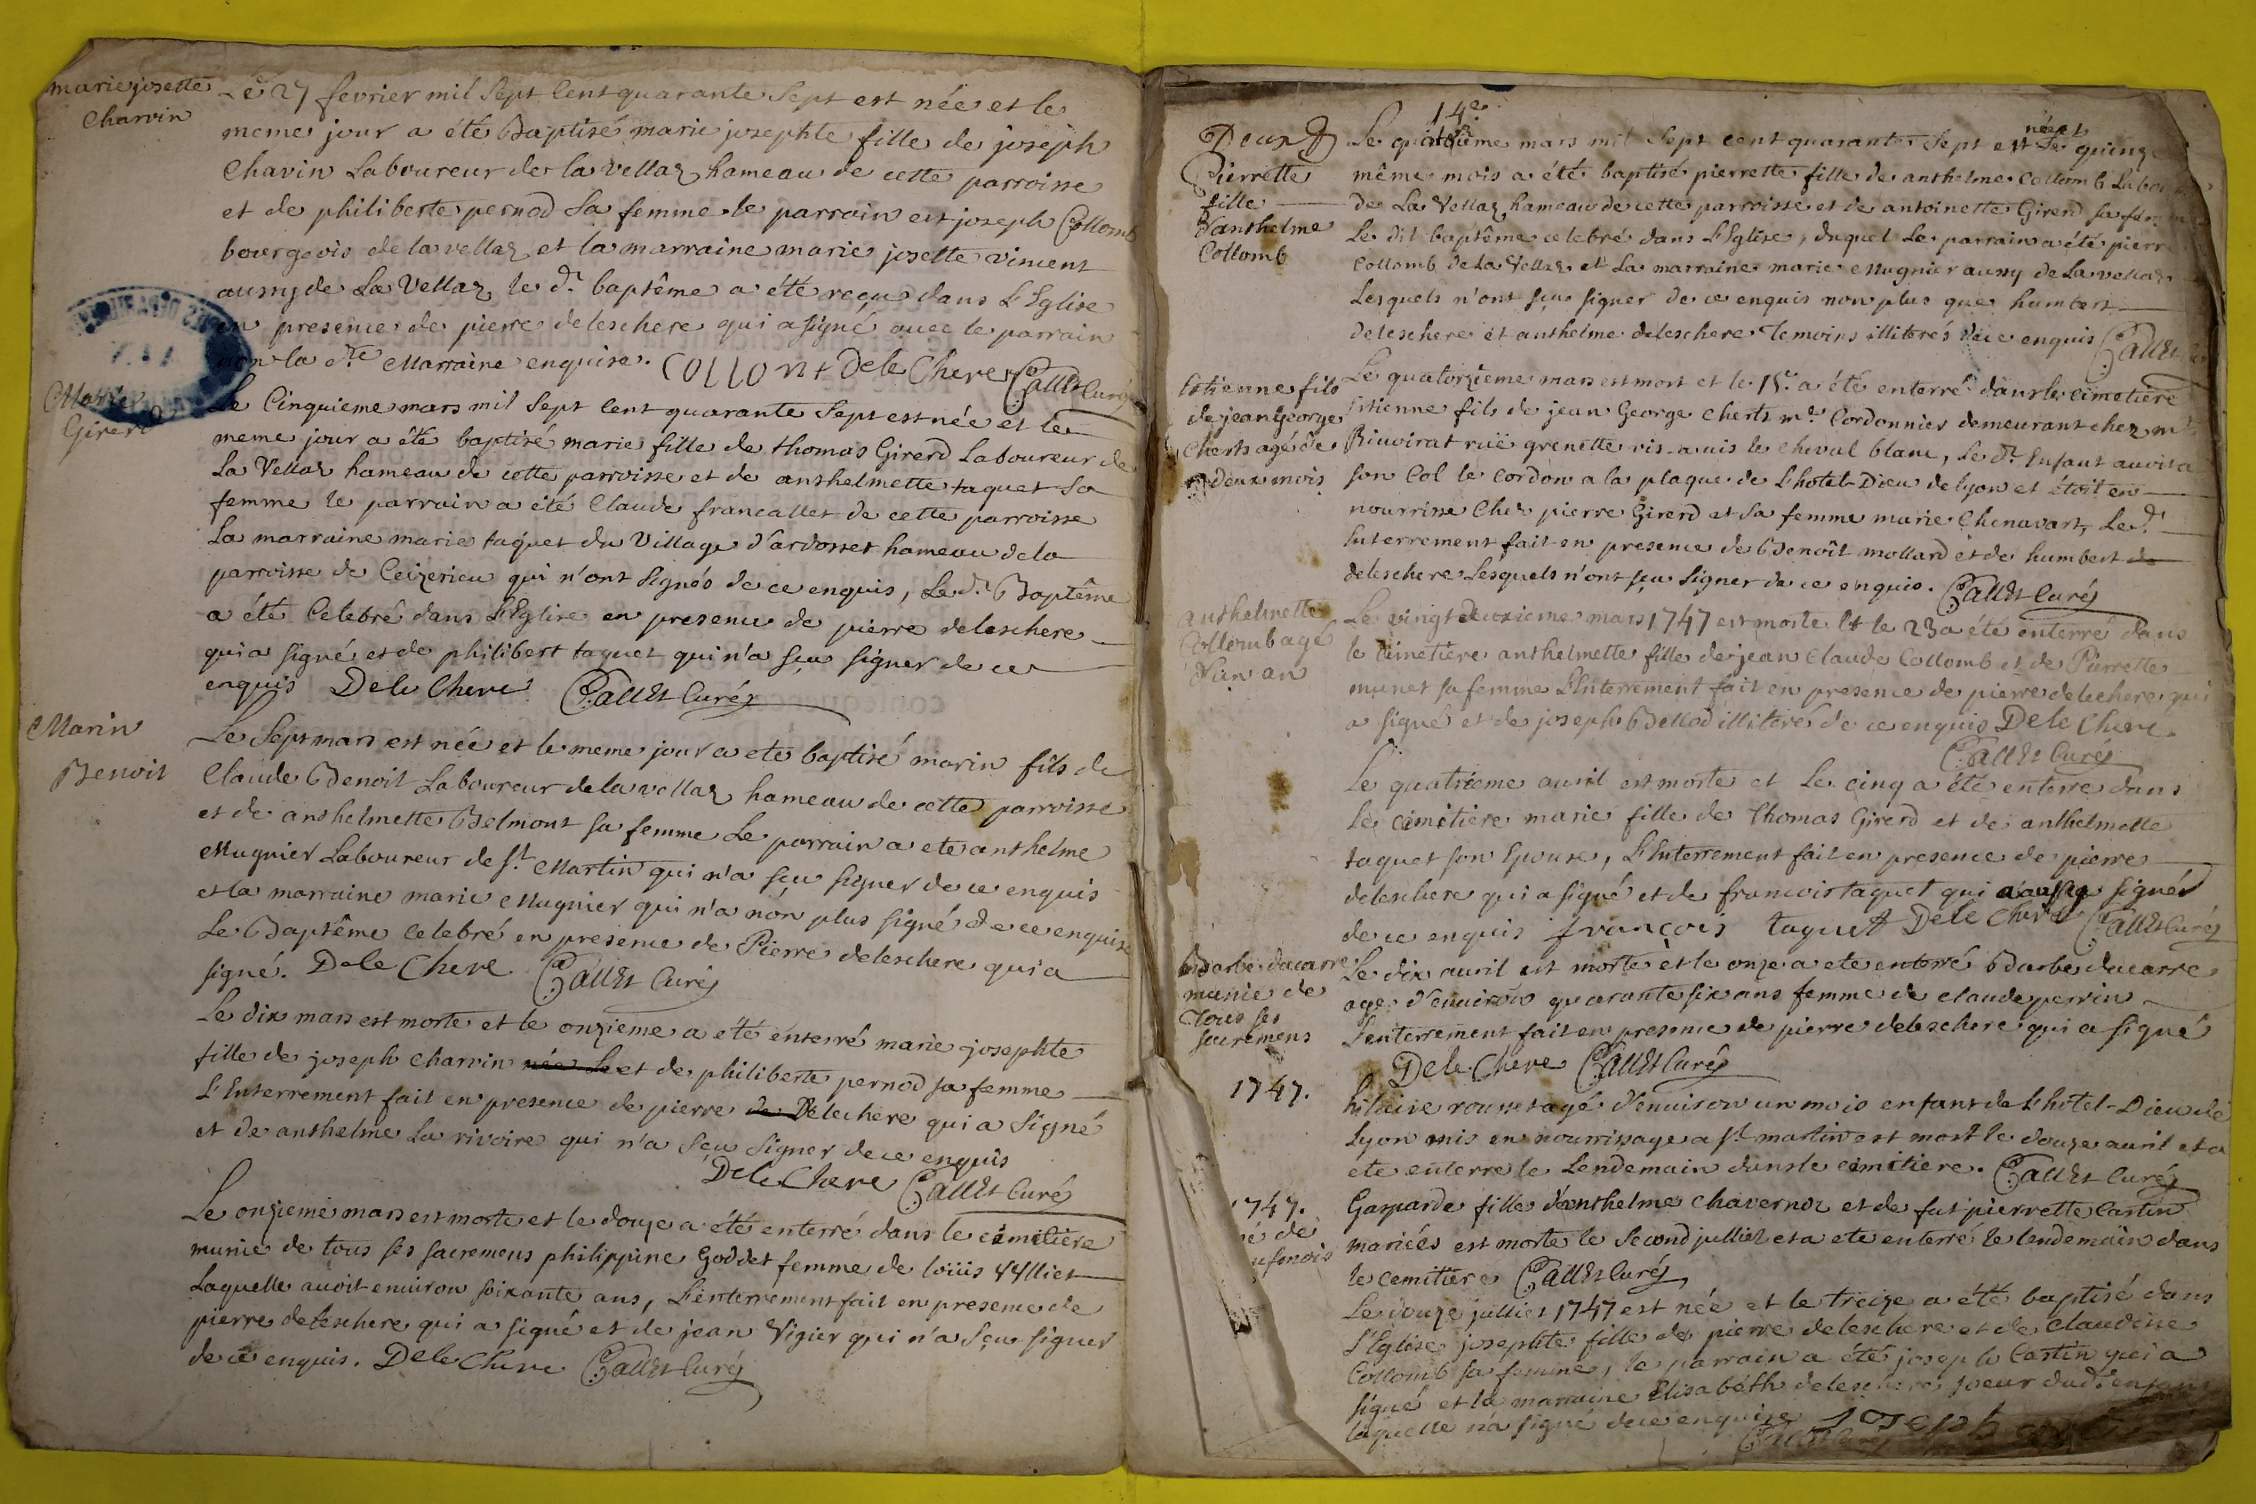 marie josette
Charvin
Le 27 fevrier mil Sept Cent quarante Sept est née et le
meme jour a été Baptisé marie josephte fille de joseph
Chavin Laboureur de la Vellaz hameau de cette parroisse
et de philiberte pernod Sa femme le parrain est joseph Collomb
bourgeois de la vellaz et la marraine marie josette vincent
aussy de La Vellaz le d.t baptême a été reçu dans L'Eglise
en presence de pierre deleschere qui a signé avec le parrain
non la d.te Marraine enquise. COLLOMt Dele Chere Callet Curé
Marie
Girerd
Le Cinquieme mars mil Sept Cent quarante Sept est née et le
meme jour a été baptisé marie fille de thomas Girerd Laboureur de
La Vellaz hameau de cette parroisse et de anthelmette taquet Sa
femme le parrain a été Claude francallet de cette parroisse
La marraine marie taquet du Village d'ardosset hameau de la
parroisse de Ceizerieu qui n'ont Signés de ce enquis, Le d.t Baptême
a été Celebré dans L'Eglise en presence de pierre deleschere
qui a signé et de philibert taquet qui n'a sçu signer de ce
enquis Dele Chere Callet Curé
Marin
Benoit
Le Sept mars est née et le meme jour a ete baptisé marin fils de
Claude Benoit Laboureur de la vellaz hameau de cette parroisse
et de anthelmette Belmont sa femme Le parrain a ete anthelme
Mugnier Laboureur de S.t Martin qui n'a sçu signer de ce enquis
et la marraine marie Mugnier qui n'a non plus signé de ce enquise
Le Baptême celebré en presence de Pierre deleschere qui a
signé. Dele Chere Callet Curé
Le dix mars est morte et le onzieme a été enterré marie josephte
fille de joseph Charvin née le et de philiberte pernod sa femme
L'Enterrement fait en presence de pierre de Delechere qui a Signé
et de anthelme La rivoire qui n'a Sçu Signer de ce enquis
Dele Chere Callet Curé
Le onzieme mars est morte et le douze a été enterré dans le cimetiere
munie de tous ses sacremens philippine Goddet femme de loüis Ylliet
Laquelle avoit environ soixante ans, L'enterrement fait en presence de
pierre deleschere qui a signé et de jean Vigier qui n'a Sçu signer
de ce enquis. Dele Chere Callet Curé
Deux
Pierrette
fille
d'anthelme
Collomb
14.e
née et
Le quatorzieme mars mil Sept cent quarante Sept est Le quinze
même mois a été baptisé pierrette fille de anthelme Collomb
de La Vellaz hameau de cette parroisse et de antoinette Girerd sa
Le dit baptême celebré dans L'Eglise, duquel Le parrain a été pierre
Collomb de La Vellaz et La marraine marie Mugnier aussy de La vellaz
Lesquels n'ont sçu signer de ce enquis non plus que humbert
deleschere et anthelme deleschere temoins illiterés de ce enquis Callet
Estienne fils
de jean George
Cherts agé de
deux mois
Le quatorzieme mars est mort et le 15.e a été enterré dans le cimetiere
Estienne fils de jean George Cherts m.e Cordonnier demeurant chez m.r
Riuvirat ruë grenette vis-a-vis le cheval blanc, Le d.t Enfant avoit a
son Col le cordon a la plaque de L'hotel-Dieu de lyon et étoit en
nourrisse Chez pierre Girerd et Sa femme marie Chenavart, Le d.t
Enterrement fait en presence de Benoît mollard et de humbert de
deleschere Lesquels n'ont sçu Signer de ce enquis. Callet Curé
anthelmette
Collomb agé
d'un an
Le vingt deuxieme mars 1747 est morte et le 23 a été enterré dans
le cimetiere anthelmette fille de jean Claude Collomb et de Pierrette
munet sa femme L'Enterrement fait en presence de pierre delechere qui
a signé et de joseph Bellod illiteré de ce enquis Dele Chere
Callet Curé
Le quatrieme avril est morte et Le cinq a été enterré dans
Le cimetiere marie fille de Thomas Girerd et de anthelmette
taquet son Epouse, L'Enterrement fait en presence de pierre
deleschere qui a signé et de francois taquet qui a aussy signé
de ce enquis françois taquet Dele Chere Callet Curé
Barbe ducarre
munie de
tous ses
sacremens
Le dix avril est morte et le onze a ete enterré Barbe ducarre
agé d'environ quarante six ans femme de claude perrin
L'enterrement fait en presence de pierre deleschere qui a signé
Dele Chere Callet Curé
1747.
hilaire rousset agé d'environ un mois enfant de L'hotel-Dieu de
Lyon mis en nourrissage a S.t martin est mort le douze avril et a
ete enterre le Lendemain dans le cimitiere. Callet Curé
1747.
é de
Gasparde fille d'anthelme Chavernoz et de fut pierrette Castin
mariéés est morte le Second julliet et a ete enterré le lendemain dans
le cemitiere Callet Curé
Le douze julliet 1747 est née et le treize a été baptisé dans
L'Eglise josephte fille de pierre deleschere et de Claudine
Collomb sa femme, le parrain a été joseph Castin qui a
signé et la marraine Elisabeth deleschere soeur dud.t
laquelle n'a signé de ce enquise JOSEPH